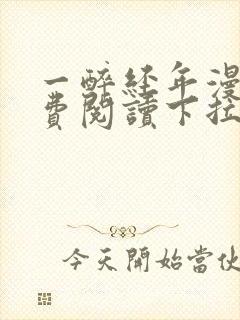 一醉经年漫
費閱讀下拉
今天開始當伙